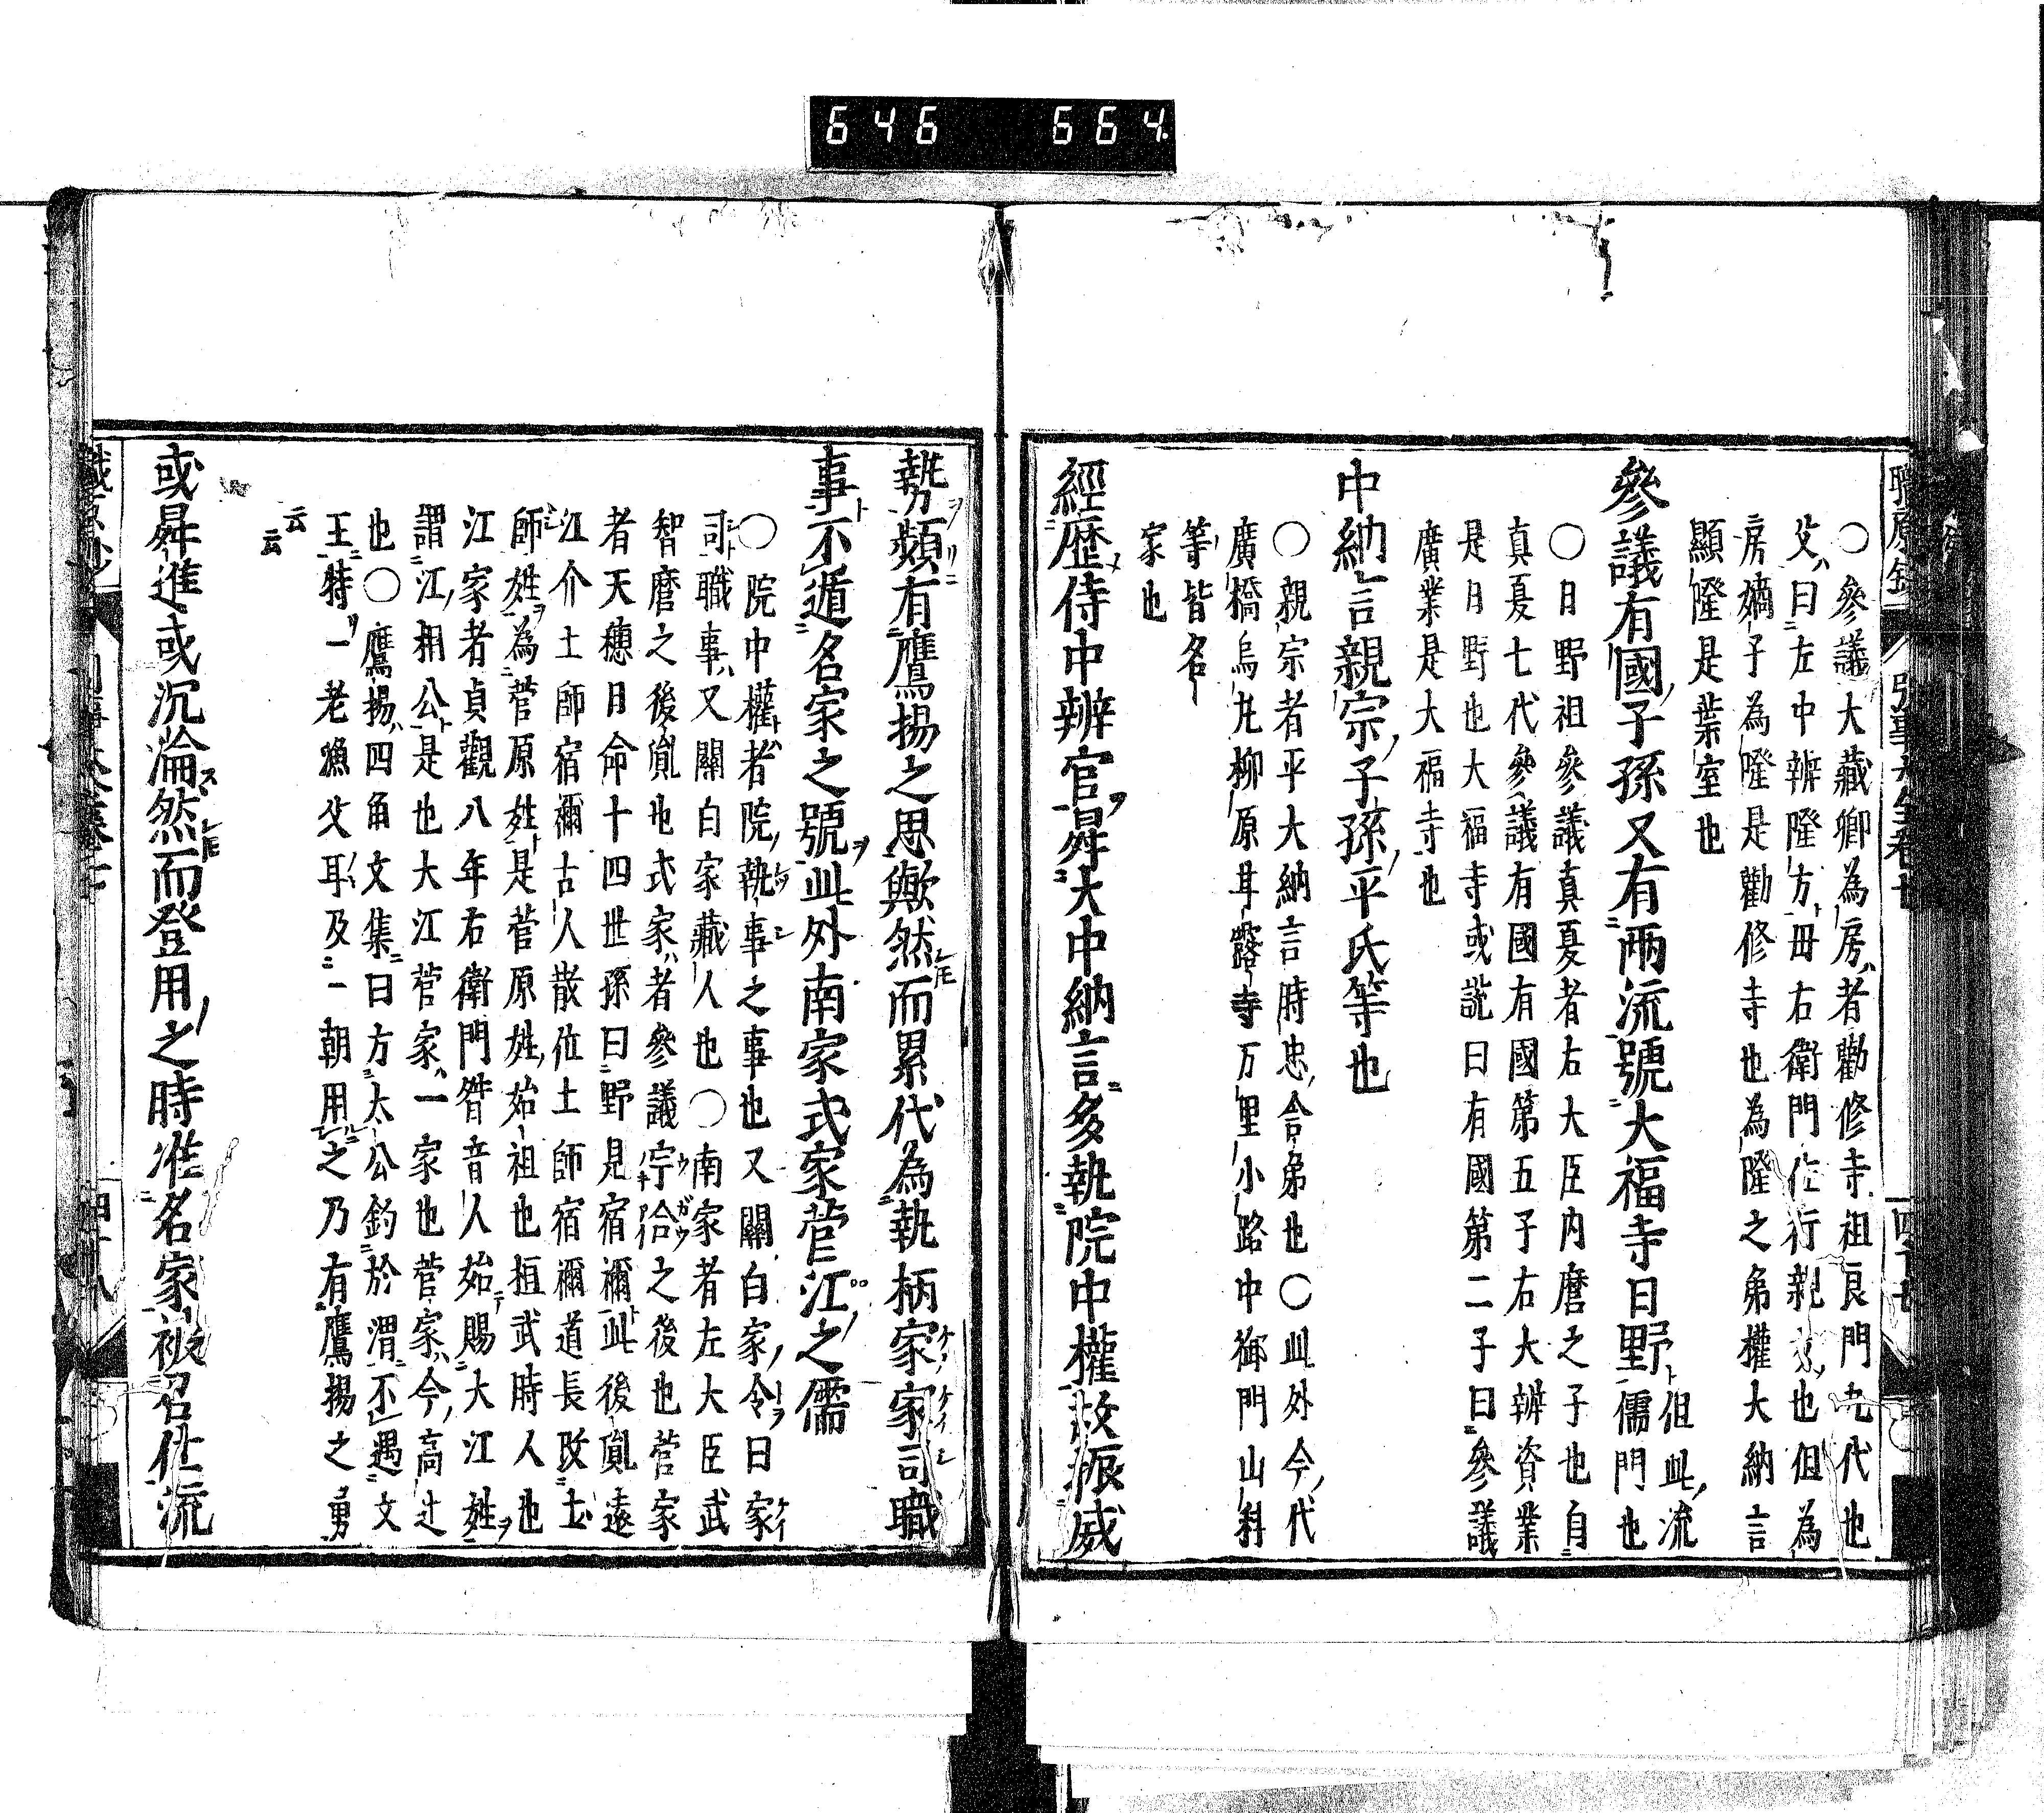 646 664
○參議大藏卿為房者勸修寺祖良門九代也
父曰左中辨隆方母右衛門佐行親女也但為
房嫡子為隆是勸修寺也為隆之弟權大納言
顯隆是葉室也
參議有國子孫又有兩流號大福寺日野但此流儒門也
○日野祖參議真夏者右大臣内麿之子也自
真夏七代參議有國有國第五子右大辨資業
是日野也大福寺或説曰有國第二子曰參議
廣業是大福寺也
中納言親宗子孫平氏等也
○親宗者平大納言時忠舎弟也○此外今代
廣橋烏丸柳原甘露寺万里小路中御門山科
等皆名
家也
經歴侍中辨官昇大中納言多執院中權故振威
勢頗有鷹揚之思歟然而累代為執柄家家司職
事不遁名家之號此外南家式家菅江之儒
○院中權者院執事之事也又關白家令曰家
司職事又關白家藏人也○南家者左大臣武
智麿之後胤也式家者參議宇合之後也菅家
者天穗日命十四世孫曰野見宿禰此後胤遠
江介土師宿禰古人散位土師宿禰道長改土
師姓為菅原姓是菅原姓始祖也桓武時人也
江家者貞觀八年右衛門督音人始賜大江姓
謂江相公是也大江菅家一家也菅家今高辻
也○鷹揚四角文集曰方太公釣於渭不遇文
王特一老漁父耳及一朝用之乃有鷹揚之勇
云云
或昇進或沉淪然而登用之時准名家被召仕流